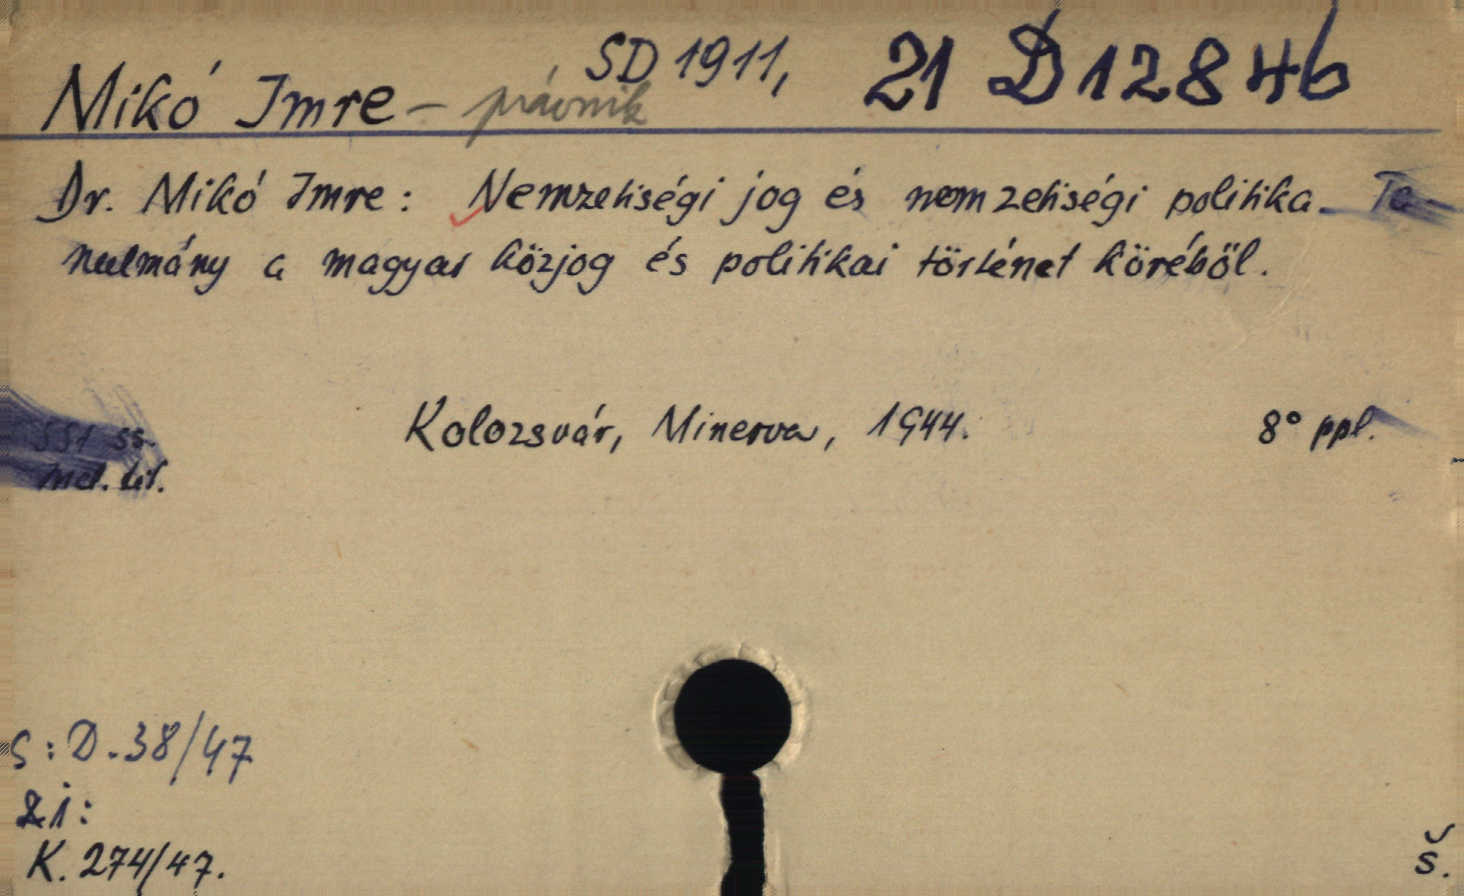 Mikó Imre – právnik SD 1911, 21 D 12846
Dr. Mikó Imre: Nemzetiségi jog és nemzetiségi politika. Ta-
nulmány a magyar közjog és politikai történet köréből.
Kolozsvár, Minerva, 1944. 8° ppl.
551 ss.
met. lit.
S: D. 38/47
Zi:
K. 274/47.
Š.